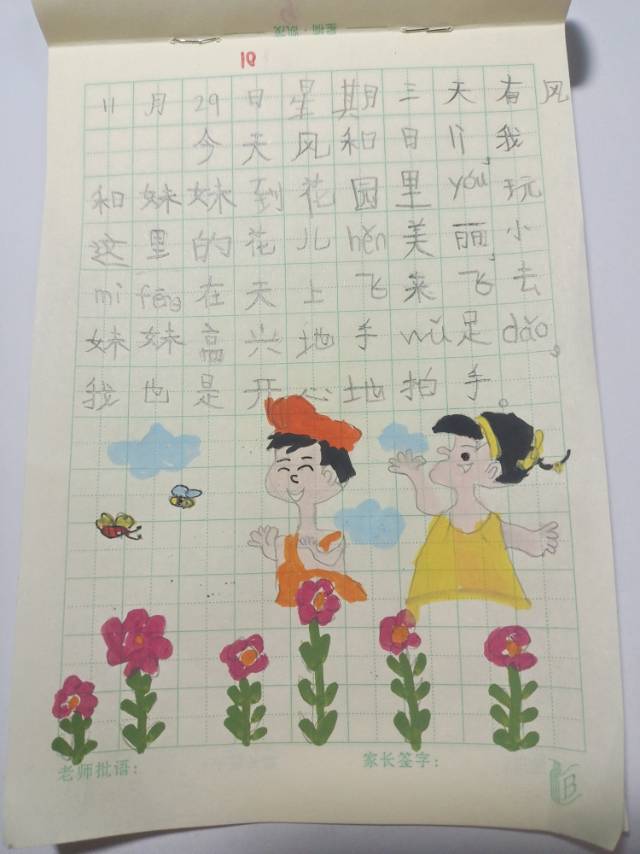 10
11月29日星期三天有风
今天风和日丽,我
和妹妹到花园里yóu玩
这里的花儿hěn美丽,小
mì fēng在天上飞来飞去
妹妹高兴地手wǔ足dǎo。
我也是开心地拍手。
老师批语: 家长签字:
B